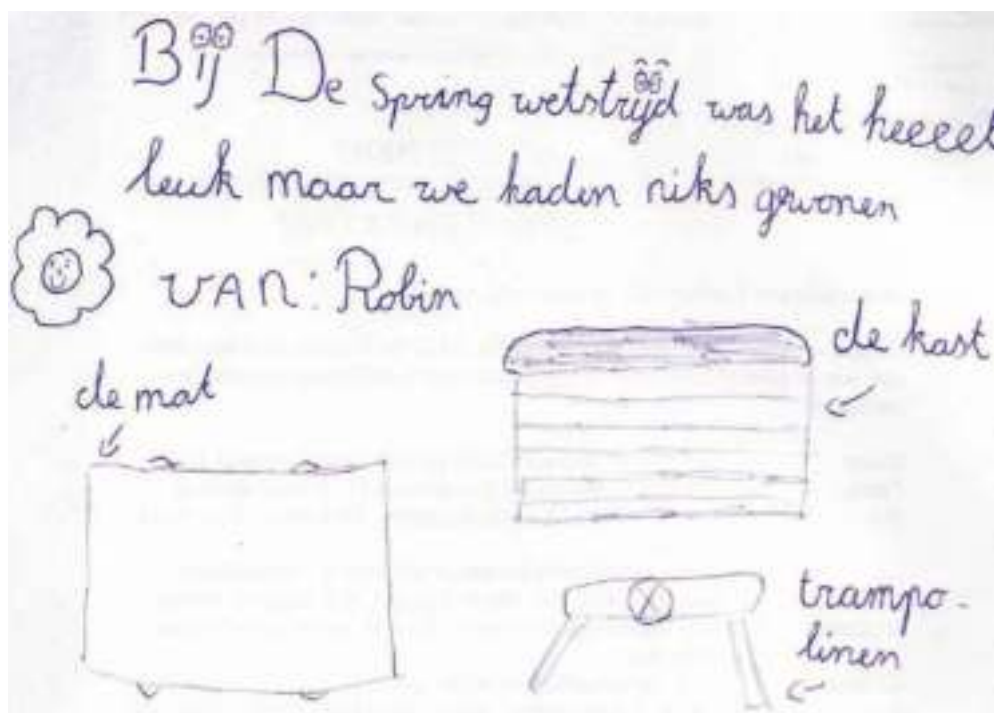 Bij De Spring wetstrijd was het heeeel
leuk maar we haden niks gewonen
van: Robin
de kast
de mat
trampo-
linen